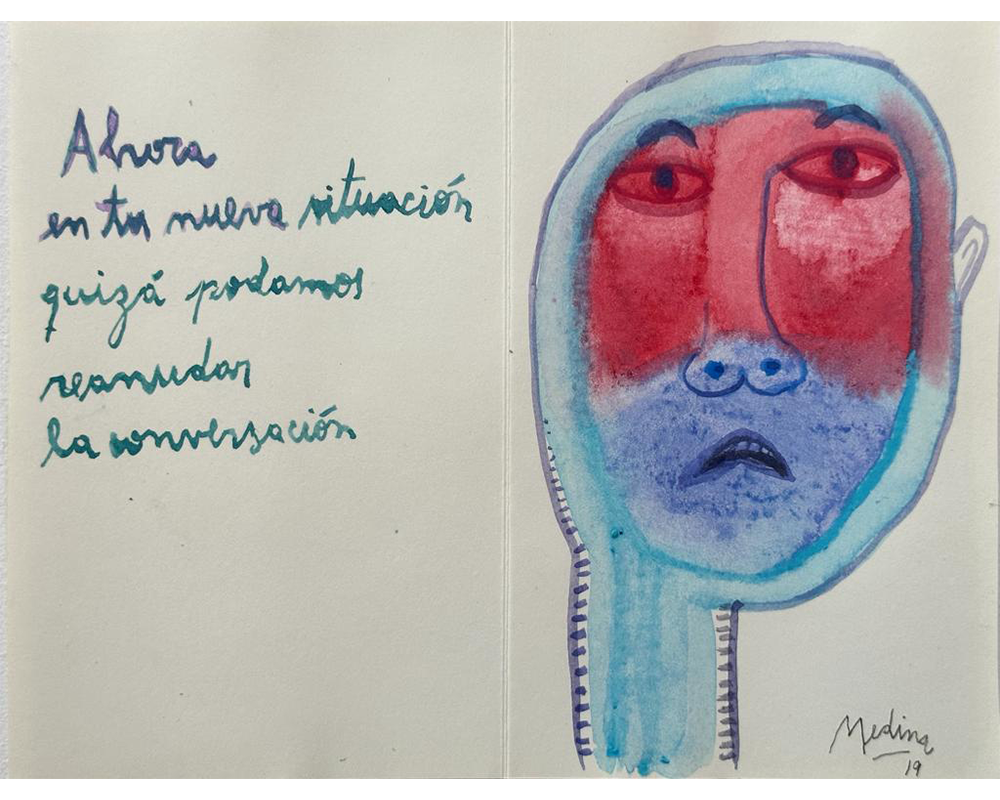 Ahora
en tu nueva situación
quizá podamos
reanudar
la conversación
Medina
19